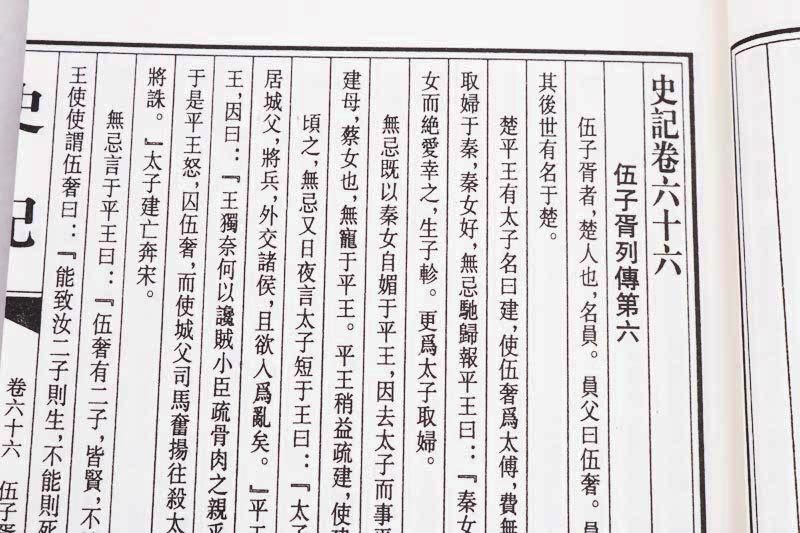 史記卷六十六
伍子胥列傳第六
伍子胥者，楚人也，名員。員父曰伍奢。員
其後世有名于楚。
楚平王有太子名曰建，使伍奢爲太傅，費無
取婦于秦，秦女好，無忌馳歸報平王曰：『秦女
女而絶愛幸之，生子軫。更爲太子取婦。
無忌既以秦女自媚于平王，因去太子而事平
建母，蔡女也，無寵于平王。平王稍益疏建，使建
頃之，無忌又日夜言太子短于王曰：『太子
居城父，將兵，外交諸侯，且欲入爲亂矣。』平王
王，因曰：『王獨奈何以讒賊小臣疏骨肉之親乎
于是平王怒，囚伍奢，而使城父司馬奮揚往殺太
將誅。』太子建亡奔宋。
無忌言于平王曰：『伍奢有二子，皆賢，不
王使使謂伍奢曰：『能致汝二子則生，不能則死
史記
卷六十六 伍子胥